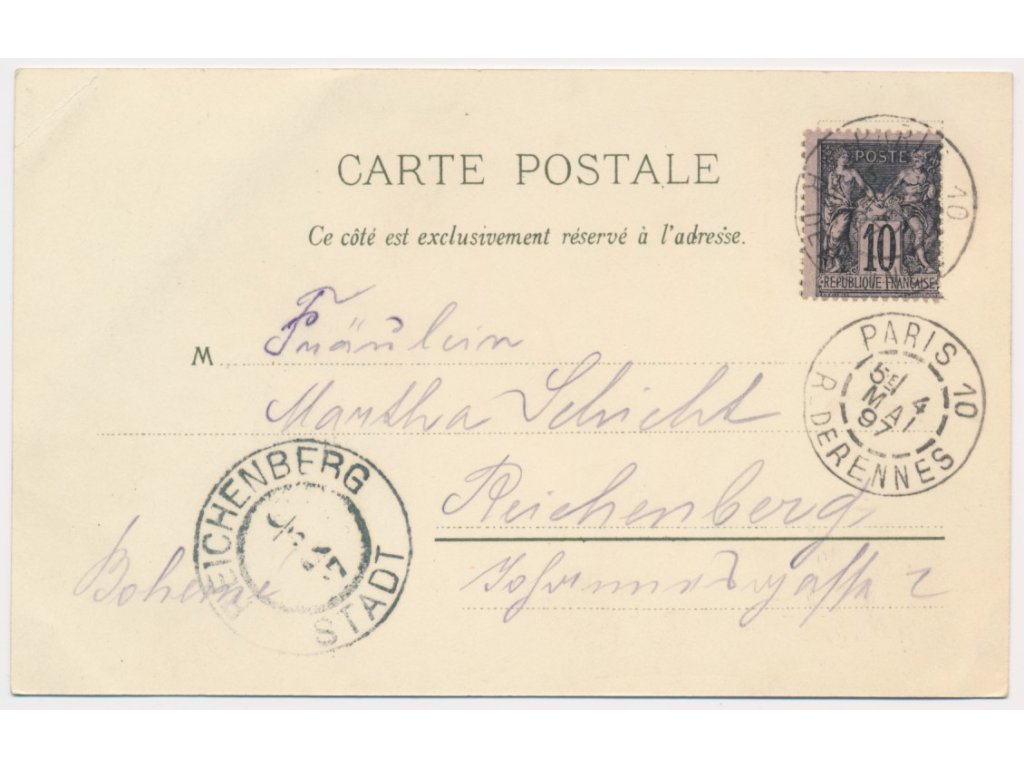 CARTE POSTALE
Ce côté est exclusivement réservé à l'adresse.
POSTE
10
RÉPUBLIQUE FRANÇAISE
PARIS 10
PARIS 10
5E/ 4
MAI
97
R. DE RENNES
M Fräulein
Martha Schicht
Reichenberg
Johannesgasse 2
Bohème
REICHENBERG
STADT